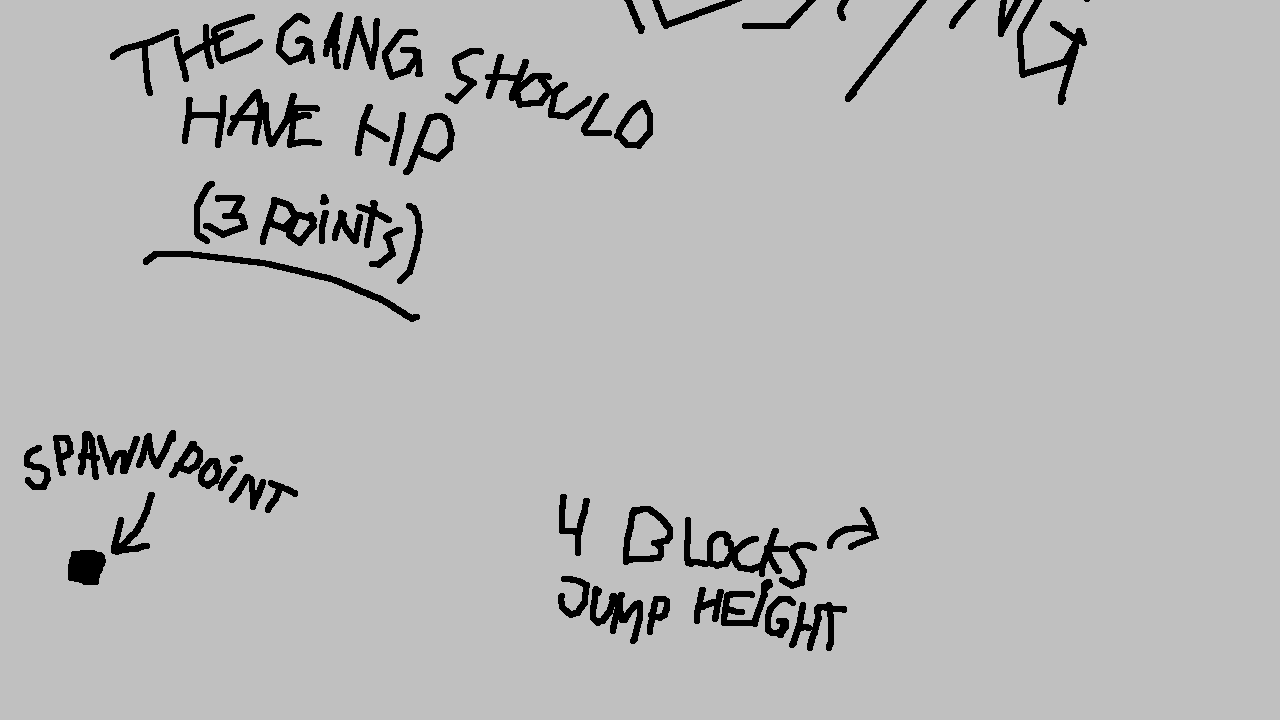 THE GANG SHOULD
HAVE HP
(3 POiNTS)
SPAWNPOiNT
4 BLOCKS
JUMP HEiGHT